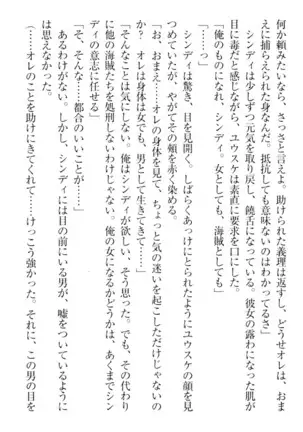 何か頼みたいなら、さっさと言えよ。義理は返すし、どうせオレは、お前
に捕らえられた身なんだ。抵抗しても意味ないのはわかってるさ」
　シンディは少しずつ元気を取り戻し、饒舌になっている。彼女の露わになった肌が
目に毒だと感じながら、ユウスケは素直に要求を口にした。
「俺のものになれ、シンディ。女としても、海賊としても」
「っ……」
　シンディは驚き、目を見開く。しばらくあっけにとられたようにユウスケの顔を見
つめていたが、やがてその頬を赤く染める。
「お、おまえ……オレの身体を見て、ちょっと気の迷いを起こしただけじゃないの
か？　オレは身体は女でも、男として生きてきて……」
「そんなことは気にしない。俺はシンディが欲しい、そう思った。でも、その代わり
に他の海賊たちを処刑しないわけじゃない。俺の女になるかどうかは、あくまでシン
ディの意志に任せる」
「そ、そんな……都合のいいことが……」
　あるわけがない。しかし、シンディには目の前にいる男が、嘘をついているように
は思えなかった。
（……オレのことを助けにきてくれて……けっこう強かった。それに、この男の目を